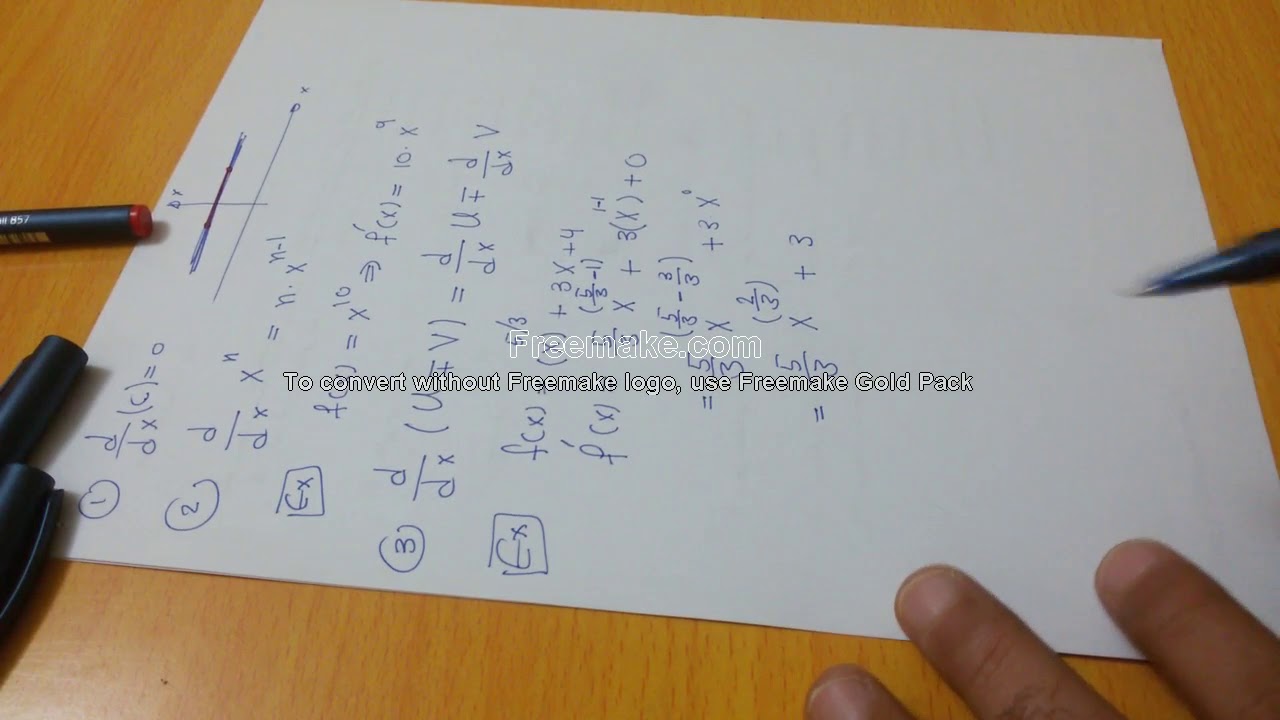 ① d/dx (c) = 0
② d/dx xⁿ = n·xⁿ⁻¹
Ex f(x) = x¹⁰ ⇒ f′(x) = 10·x⁹
③ d/dx (u ∓ v) = d/dx u ∓ d/dx v
Ex f(x) = (x)^5/3 + 3x + 4
f′(x) = 5/3 x^(5/3 - 1) + 3(x)^1-1 + 0
= 5/3 x^(5/3 - 3/3) + 3x⁰
= 5/3 x^(2/3) + 3
x
x
857
Freemake.com
To convert without Freemake logo, use Freemake Gold Pack